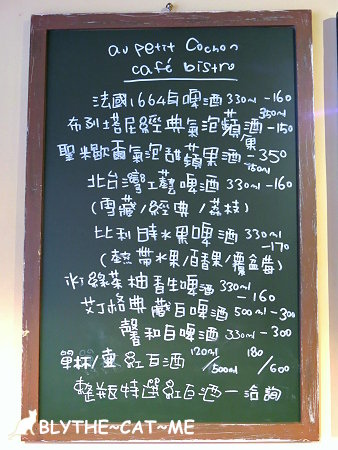 au petit Cochon
café bistro
法國1664白啤酒 330ml -160
布列塔尼經典氣泡蘋果酒 350ml -150
聖米歇爾氣泡甜蘋果酒 -350
750ml
北台灣工藝啤酒 330ml -160
(雪藏/經典/荔枝)
比利時水果啤酒 330ml -170
(熱帶水果/百香果/覆盆莓)
冰綠茶柚香生啤酒 330ml -160
艾丁格典藏白啤酒 500ml -300
馨和白啤酒 330ml -300
單杯/壺 紅白酒 120ml/500ml 180/600
整瓶特選紅白酒 — 洽詢
BLYTHE~CAT~ME